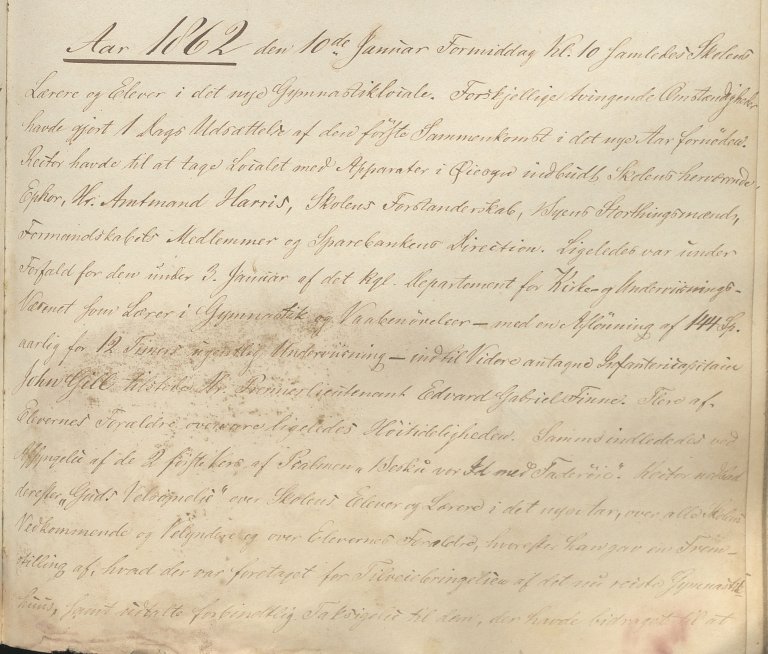 Aar 1862 den 10de Januar Formiddag Kl. 10 samledes Skolens
Lærere og Elever i det nye Gymnastiklocale. Forskjellige tvingende Omstændigheder
havde gjort 1 Dags Udsættelse af den første Sammenkomst i det nye Aar fornøden.
Rector havde til at tage Localet med Apparater i Øiesyn indbudt Skolens herværende
Ephor, Hr. Amtmand Harris, Skolens Forstanderskab, Byens Storthingsmænd,
Formandskabets Medlemmer og Sparebankens Direction. Ligeledes var under
Forfald for den under 3. Januar af det kgl. Departement for Kirke- og Undervisnings-
Væsenet som Lærer i Gymnastik og Vaabenøvelser – med en Aflønning af 144 Sp.
aarlig for 12 Timers ugentlig Undervisning – indtil Videre antagne Infantericapitain
John Gill tilstede Hr. Premierlieutenant Edvard Gabriel Finne. Flere af
Elevernes Forældre overvare ligeledes Høitideligheden. Samme indledededes ved
Afsyngelse af de 2 første Vers af Psalmen „ vor med Faderøie“. Rector nedbad
derefter „Guds Velsignelse“ over Skolens Elever og Lærere i det nye Aar, over alle Skolens
Vedkommende og Velyndere og over Elevernes Forældre, hvorefter han gav en Frem-
stilling af, hvad der var foretaget for Tilveiebringelsen af det nu reiste Gymnastik-
huus, samt udtalte forbindtlig Taksigelse til dem, der havde bidraget til at